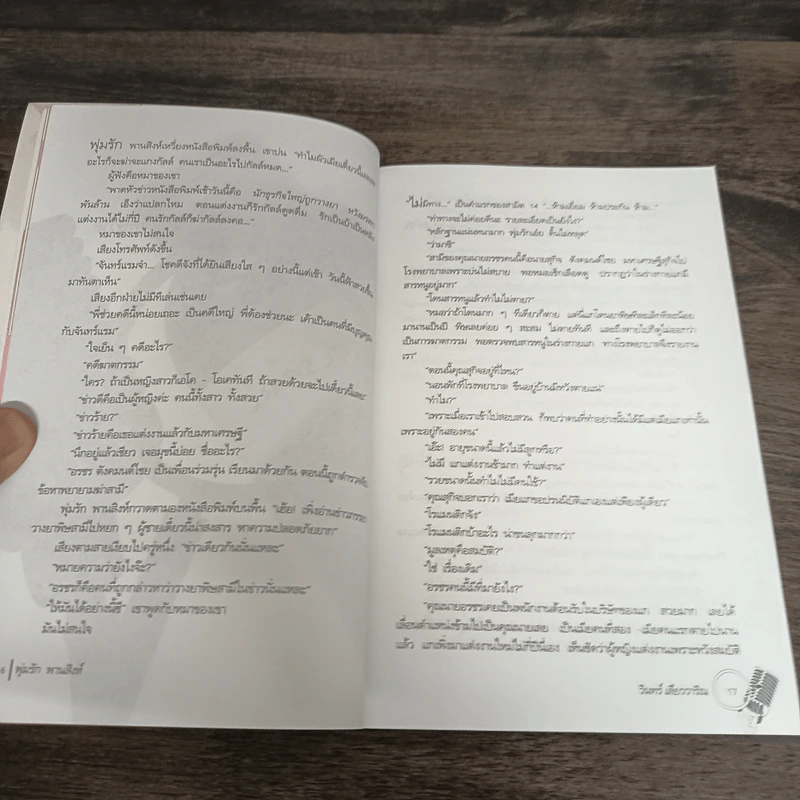 พุ่มรัก พานสิงห์เหวี่ยงหนังสือพิมพ์ลงพื้น เขาบ่น "ทำไมผัวเมียเดี๋ยวนี้
อะไรก็จะฆ่าจะแกงกัลล์ คนเราเป็นอะไรไปกัลล์หมด..."
ผู้ฟังคือหมาของเขา
"พาดหัวข่าวหนังสือพิมพ์เช้าวันนี้คือ นักธุรกิจใหญ่ถูกวางยา
พันล้าน เอ็งว่าแปลกไหม ตอนแต่งงานก็รักกัลล์ดูดดื่ม
แต่งงานได้ไม่กี่ปี คนรักกัลล์ก็ฆ่ากัลล์ลงคอ..."
หมาของเขาไม่สนใจ
เสียงโทรศัพท์ดังขึ้น
"จันทร์แรมจ๋า... โชคดีจังที่ได้ยินเสียงใส ๆ อย่างนี้แต่เช้า วันนี้
มาทันตาเห็น"
เสียงอีกฝ่ายไม่มีทีเล่นเช่นเคย
"พี่ช่วยคดีนี้หน่อยเถอะ เป็นคดีใหญ่ พี่ต้องช่วยนะ เค้าเป็นคนที่มีบุญคุณ
กับจันทร์แรม"
"ใจเย็น ๆ คดีอะไร?"
"คดีฆาตกรรม"
"ใคร? ถ้าเป็นหญิงสาวก็เอโค - โอเคทันที ถ้าสวยด้วยจะไปเดี๋ยวนี้เลย"
"ข่าวดีคือเป็นผู้หญิงค่ะ คนนี้ทั้งสาว ทั้งสวย"
"ข่าวร้าย?"
"ข่าวร้ายคือเธอแต่งงานแล้วกับมหาเศรษฐี"
"นึกอยู่แล้วเชียว เจอมุขนี้บ่อย ชื่ออะไร?"
"อรชร ดังคมนต์โชย เป็นเพื่อนร่วมรุ่น เรียนมาด้วยกัน ตอนนี้ถูกตำรวจจับ
ข้อหาพยายามฆ่าสามี"
พุ่มรัก พานสิงห์กวาดตามองหนังสือพิมพ์บนพื้น "เอ้อ! เพิ่งอ่านข่าว
วางยาพิษสามีไปหยก ๆ ผู้ชายเดี๋ยวนี้น่าสงสาร หาความปลอดภัยยาก"
เสียงตามสายเงียบไปครู่หนึ่ง "ข่าวเดียวกันนั่นแหละ"
"หมายความว่ายังไงจ๊ะ?"
"อรชรก็คือคนที่ถูกกล่าวหาว่าวางยาพิษสามีในข่าวนั่นแหละ"
"ให้มันได้อย่างนี้ซี" เขาพูดกับหมาของเขา
มันไม่สนใจ
6 พุ่มรัก พานสิงห์
"ไม่มีทาง..." เป็นคำแรกของสารวัต 14 "...ห้ามเยี่ยม ห้ามประกัน ห้าม..."
"ท่าทางจะไม่ค่อยดีนะ รายละเอียดเป็นยังไง?"
"หลักฐานแน่นหนามาก พุ่มรักเอ๋ย ดิ้นไม่หลุด"
"ว่ามาซิ"
"สามีของคุณนายอรชรคนนี้คือนายสุกิจ ดังคมนต์โชย มหาเศรษฐีสุกิจไป
โรงพยาบาลเพราะป่วยไม่สบาย พอหมอเช็กเลือดดู ปรากฏว่าในร่างกายมี
สารหนูอยู่มาก"
"โดนสารหนูแล้วทำไมไม่ตาย?"
"หมอว่าถ้าโดนมาก ๆ ทีเดียวก็ตาย แต่นี่แกโดนยาพิษทีละเล็กทีละน้อย
มานานเป็นปี พิษเลยค่อย ๆ สะสม ไม่ตายทันที และถึงตายไปก็ดูไม่ออกว่า
เป็นการฆาตกรรม พอตรวจพบสารหนูในร่างกายแก ทางโรงพยาบาลจึงรายงาน
เรา"
"ตอนนี้คุณสุกิจอยู่ที่ไหน?"
"นอนพักที่โรงพยาบาล ขืนอยู่บ้านมีหวังตายแน่"
"ทำไม?"
"เพราะเมื่อเราเข้าไปสอบสวน ก็พบว่าคนที่ทำอย่างนั้นได้มีแต่เมียแกเท่านั้น
เพราะอยู่กันสองคน"
"เอ๊ะ! อายุขนาดนี้แล้วไม่มีลูกหรือ?"
"ไม่มี แกแต่งงานช้ามาก ทำแต่งาน"
"รวยขนาดนั้นทำไมไม่มีคนใช้?"
"คุณสุกิจบอกเราว่า เมียแกขอปรนนิบัติแกเองแต่เพียงผู้เดียว"
"โรแมนติกจัง"
"โรแมนติกบ้าอะไร น่าขนลุกมากกว่า"
"มูลเหตุคือสมบัติ?"
"ใช่ เรื่องเดิม"
"อรชรคนนี้มีที่มายังไง?"
"คุณนายอรชรเคยเป็นพนักงานต้อนรับในบริษัทของแก สวยมาก เลยได้
เลื่อนตำแหน่งข้ามไปเป็นคุณนายเลย เป็นเมียคนที่สอง เมียคนแรกตายไปนาน
แล้ว แกเพิ่งมาแต่งงานใหม่ไม่กี่ปีนี่เอง เห็นชัดว่าผู้หญิงแต่งงานเพราะหวังสมบัติ
วินทร์ เลียววาริณ 17